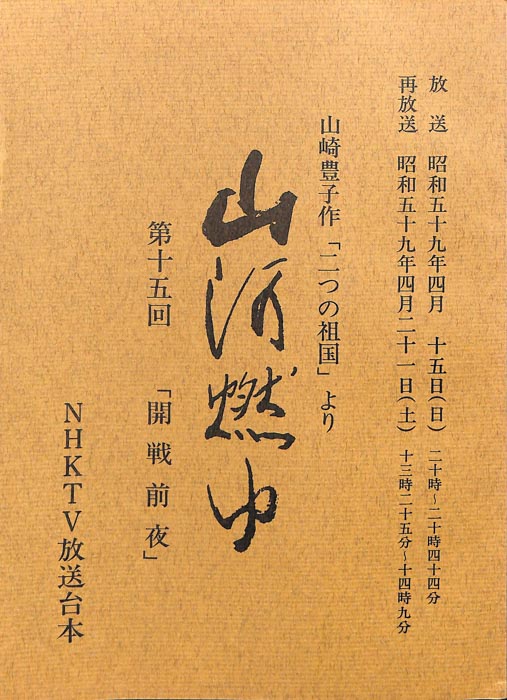 放送 昭和五十九年四月 十五日(日) 二十時~二十時四十四分
再放送 昭和五十九年四月二十一日(土) 十三時二十五分~十四時九分
山崎豊子作「二つの祖国」より
山河燃ゆ
第十五回 「開戦前夜」
NHKTV放送台本